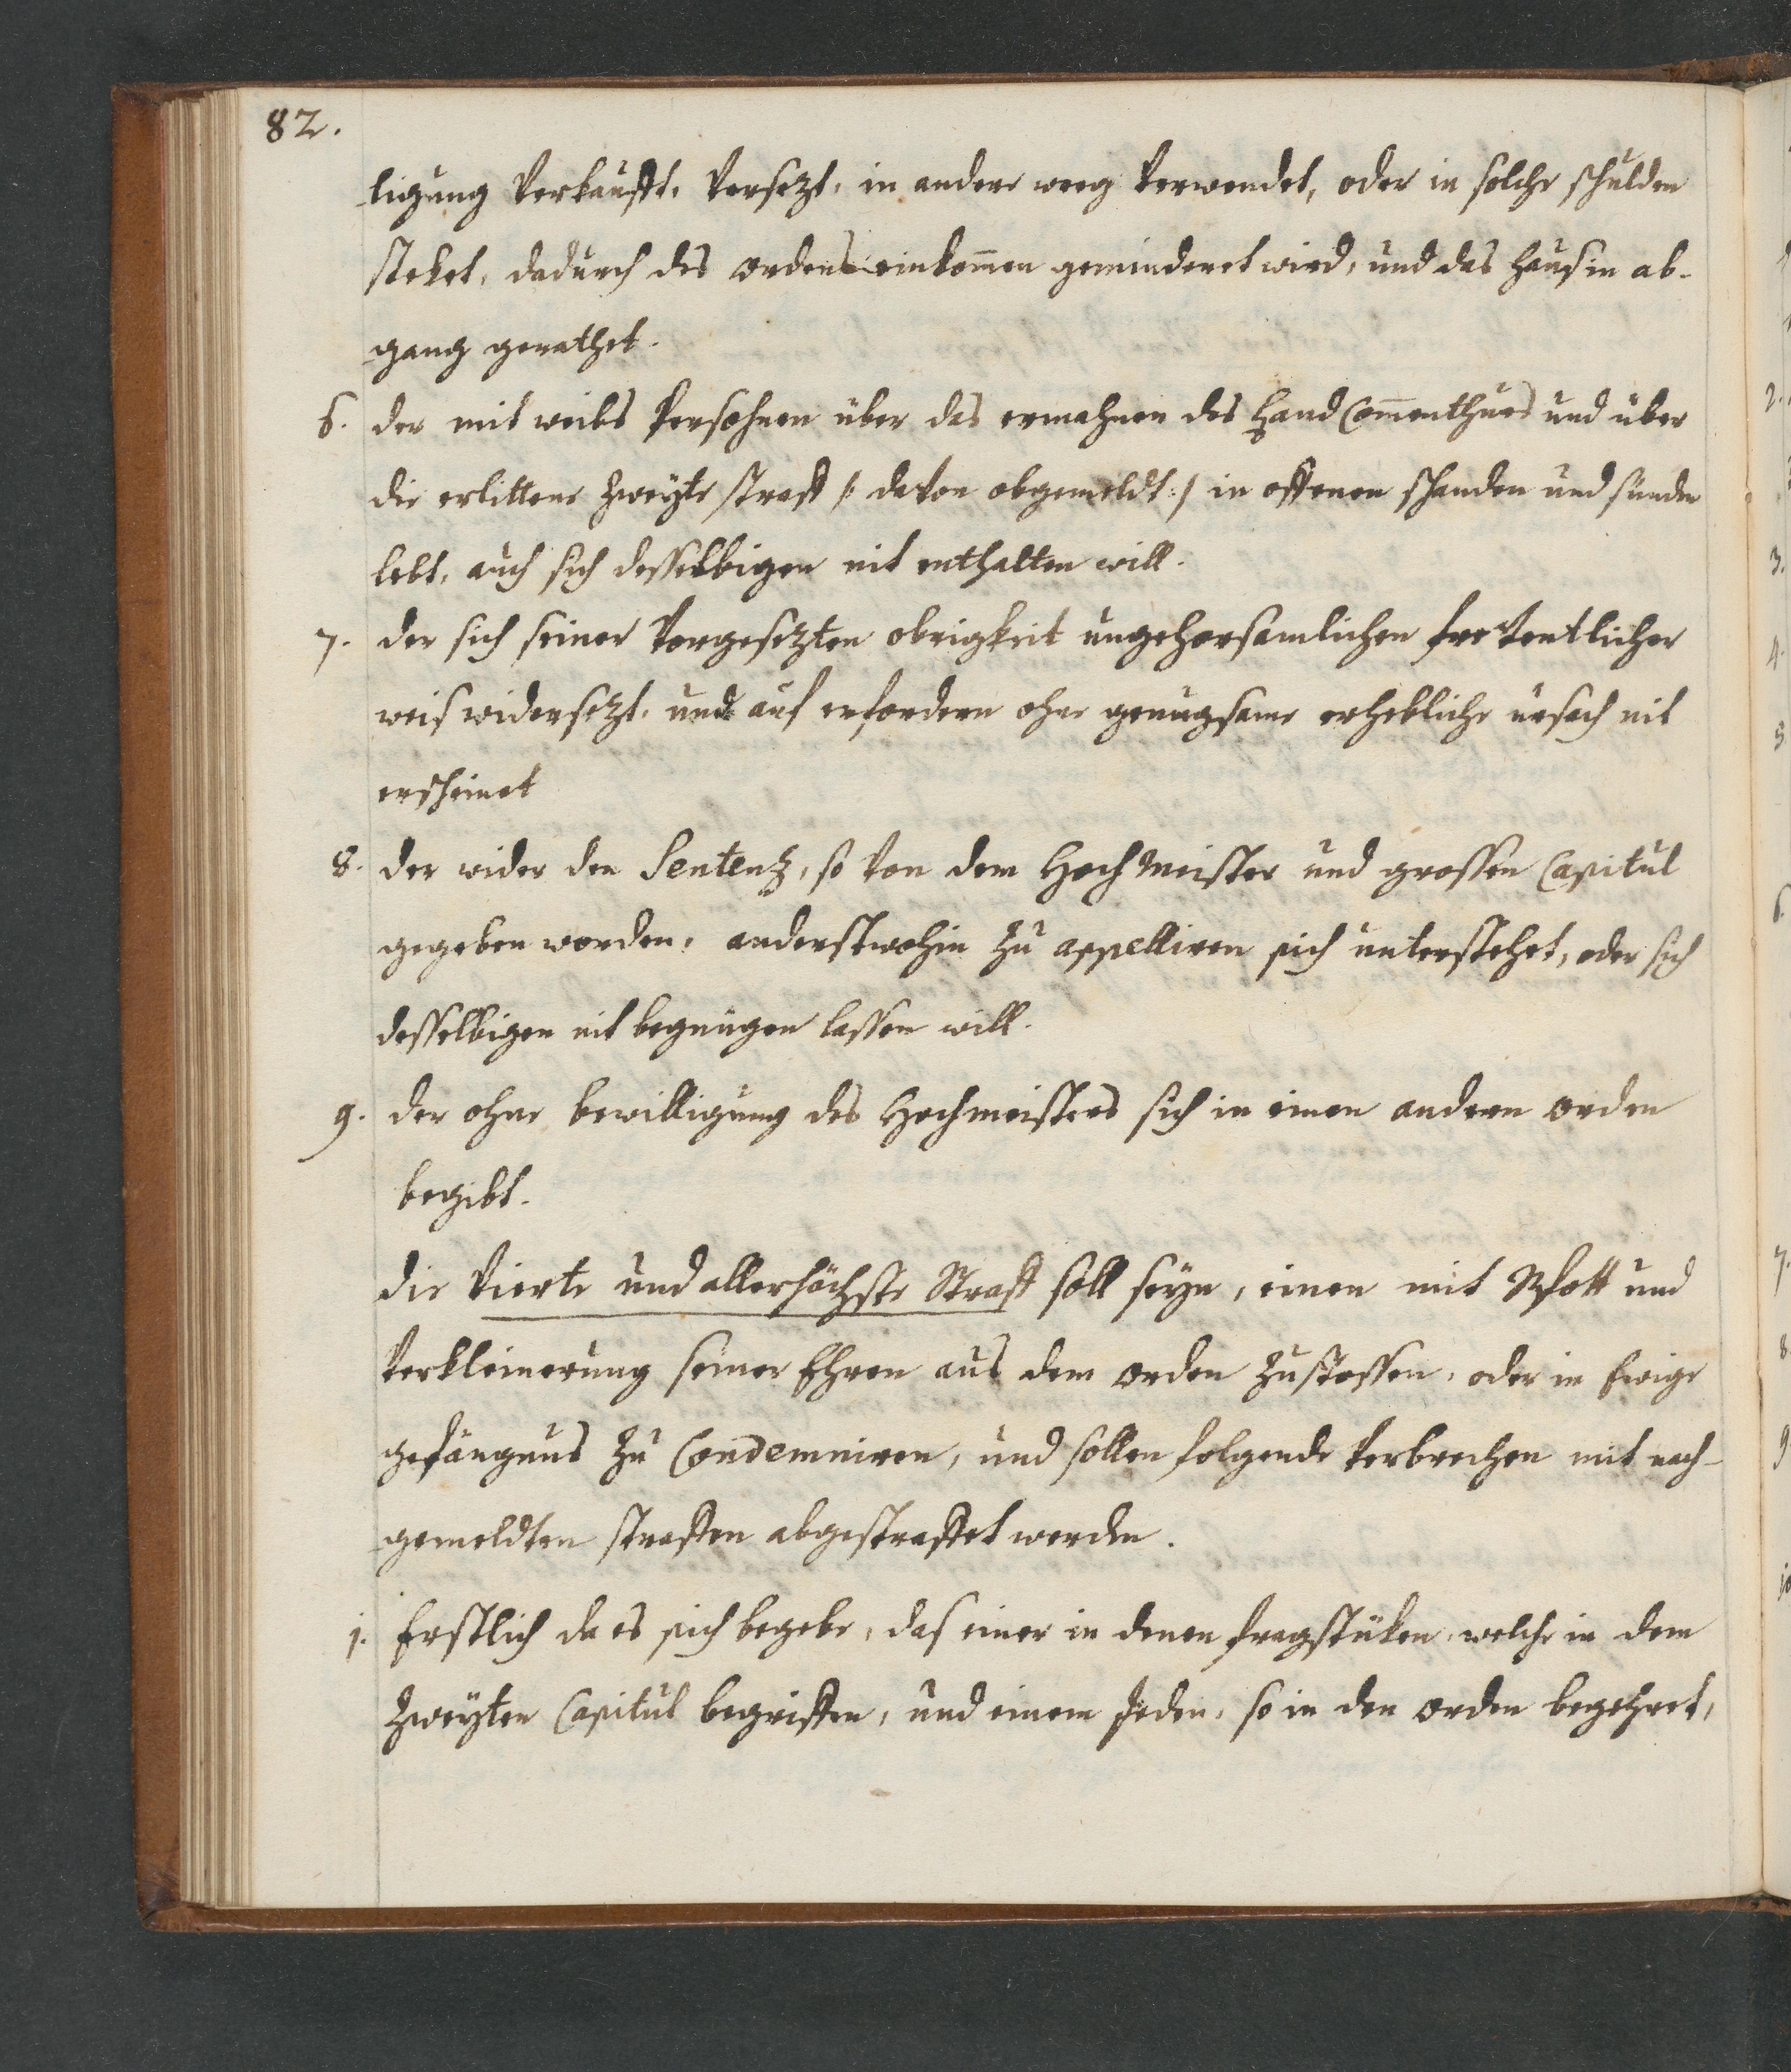 82.
ligung verkaufft, versezt, in andere weeg verwendet, oder in solche schulden
steket, dadurch des ordens einkom̅en geminderet wird, und das Haus in ab-
gang gerathet.
6. der mit weibs Persohnen über das ermahnen des Land Com̅enthurs und über
die erlittene zweyte straff /: davon obgemeldt :/ in offenen schanden und sünden
lebt, auch sich desselbigen nit enthalten will.
7. der sich seiner vorgesezten obrigkeit ungehorsamlichen freventlicher
weis widersezt, und auf erfordern ohne genugsame erhebliche ursach nit
erscheinet
8. der wider den Sentenz, so von dem Hochmeister und grossen Capitul
gegeben worden, anderstwohin zu appelliren sich unterstehet, oder sich
desselbigen nit begnügen lassen will.
9. der ohne bewilligung des Hochmeisters sich in einen andern orden
begibt.
die vierte und allerhöchste Straff soll seyn, einen mit Spott und
verkleinerung seiner Ehren aus dem orden zustossen, oder in Ewige
gefängnus zu Condemniren, und sollen folgende verbrechen mit nach-
gemeldten straffen abgestraffet werden.
1. Erstlich da es sich begebe, das einer in denen fragstüken, welche in dem
zweyten Capitul begriffen, und einem jeden, so in den orden begehret,